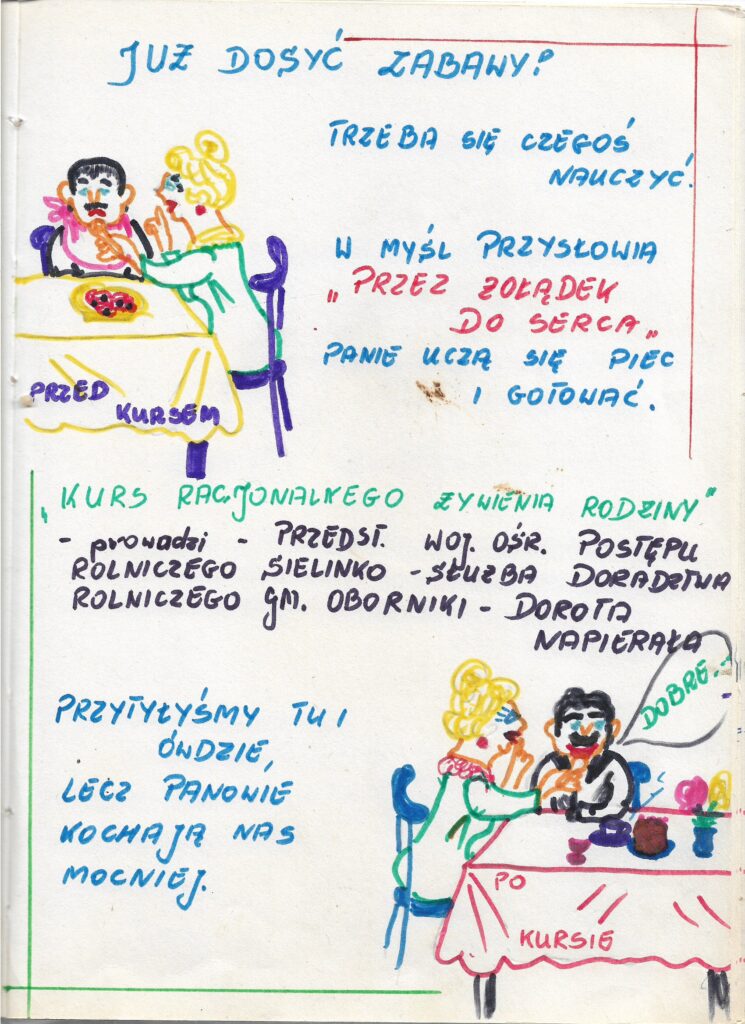 JUŻ DOSYĆ ZABAWY!
TRZEBA SIĘ CZEGOŚ
NAUCZYĆ.
W MYŚL PRZYSŁOWIA
„PRZEZ ŻOŁĄDEK
DO SERCA„
PANIE UCZĄ SIĘ PIEC
I GOTOWAĆ.
PRZED
KURSEM
„KURS RACJONALNEGO ŻYWIENIA RODZINY"
- prowadzi - PRZEDST. WOJ. OŚR. POSTĘPU
ROLNICZEGO SIELINKO - SŁUŻBA DORADZTWA
ROLNICZEGO GM. OBORNIKI - DOROTA
NAPIERAŁA
DOBRE.
PRZYTYŁYŚMY TU I
ÓWDZIE,
LECZ PANOWIE
KOCHAJĄ NAS
MOCNIEJ.
PO
KURSIE